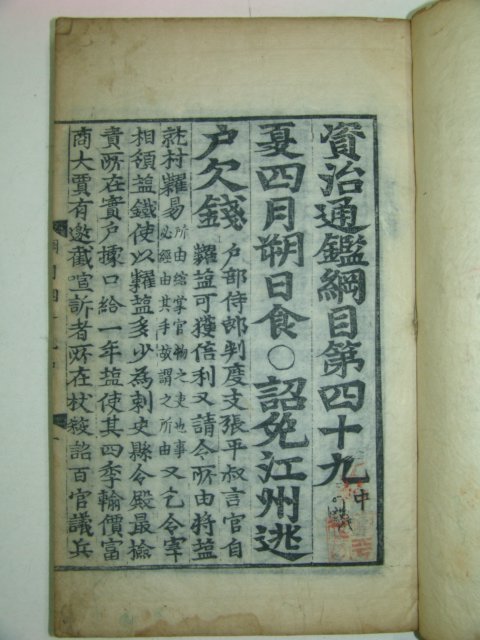 資治通鑑綱目第四十九 中
夏四月朔日食○詔免江州逃
戶欠錢 戶部侍郎判度支張平叔言官自
糶盐可獲倍利又請令所由將盐
就村糶易所由綰掌官物之吏也事必經由其手故謂之所由又乞令宰
相領盐鐵使以糶盐多少為刺史縣令殿最撿
責所在實戶據口給一年盐使其四季輸價富
商大賈有邀截喧訴者所在杖殺詔百官議兵